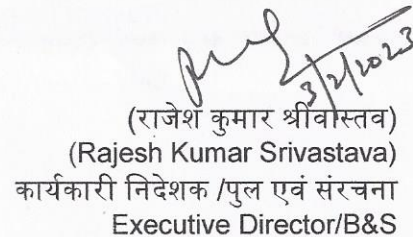 3/2/2023
(राजेश कुमार श्रीवास्तव)
(Rajesh Kumar Srivastava)
कार्यकारी निदेशक /पुल एवं संरचना
Executive Director/B&S